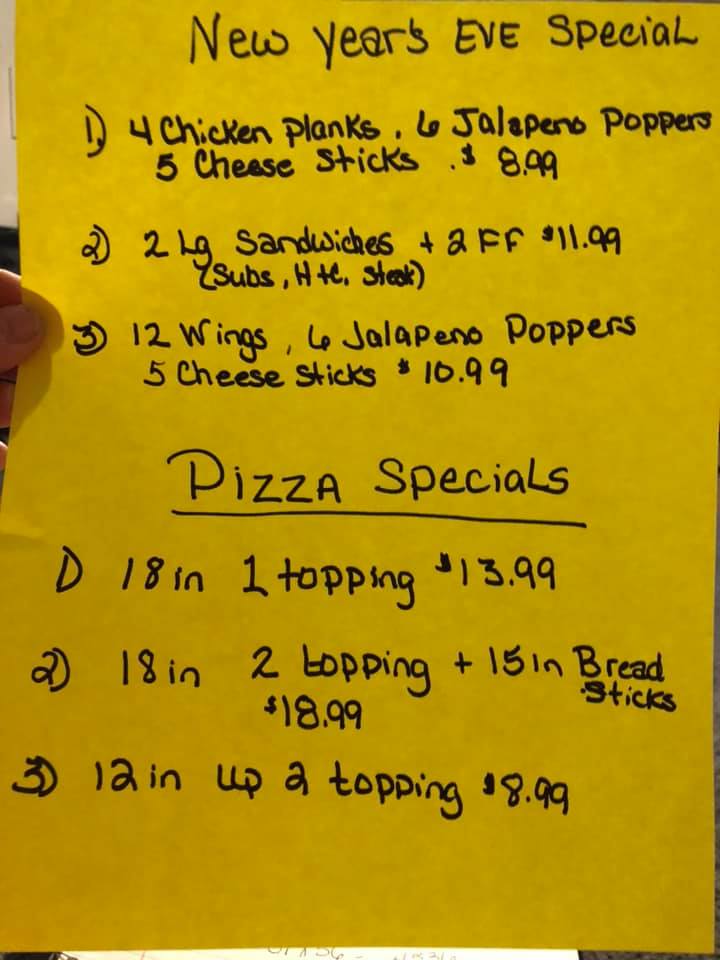 New Year's EVE Special
1) 4 Chicken Planks, 6 Jalapeno Poppers
5 Cheese Sticks .$ 8.99
2) 2 Lg Sandwiches + 2 FF $11.99
(Subs, H+C, Steak)
3) 12 Wings, 6 Jalapeno Poppers
5 Cheese Sticks $10.99
PIZZA Specials
1) 18 in 1 topping $13.99
2) 18 in 2 topping + 15 in Bread
Sticks
$18.99
3) 12 in up 2 topping $8.99